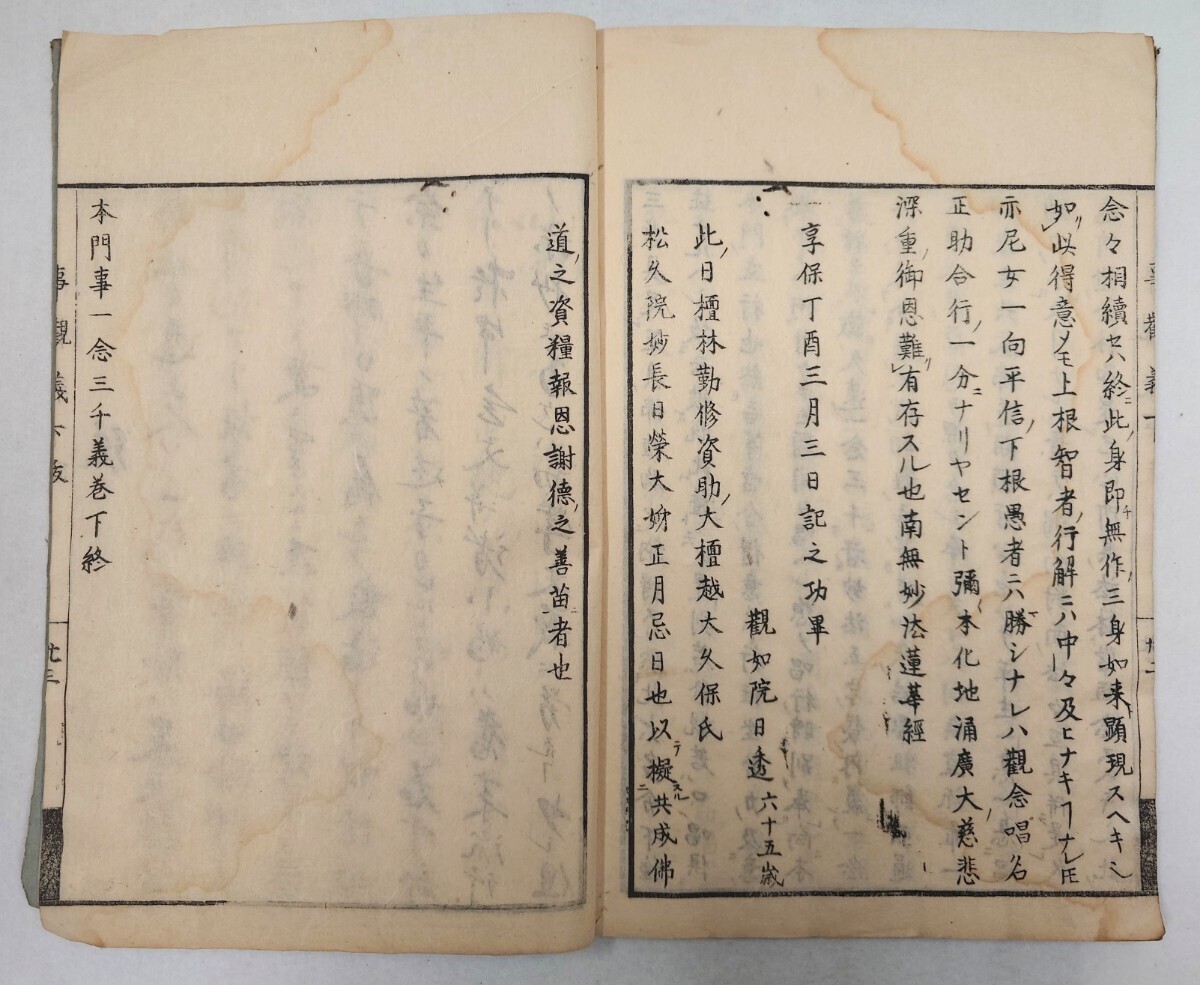 念々相續セハ終ニ此ノ身即チ無作ノ三身如来ト顯現スヘキ
如リ此得意メモ上根智者ノ行解ニハ中々及ヒナキヿナレ𪜈
亦尼女一向平信ノ下根愚者ニハ勝シナレハ觀念唱名
正助合行ノ一分ニナリヤセント彌本化地涌廣大ノ慈悲
深重ノ御恩難リ有存スル也南無妙法蓮華經
享保丁酉三月三日記之功畢
觀如院日透六十五歳
此ノ日檀林勤修資助ノ大檀越大久保氏
松久院妙長日榮大姉正月忌日也以テ擬スル共成佛
道ノ之資糧報恩謝德ノ之善苗ニ者也
本門事一念三千義巻下終
事觀義下